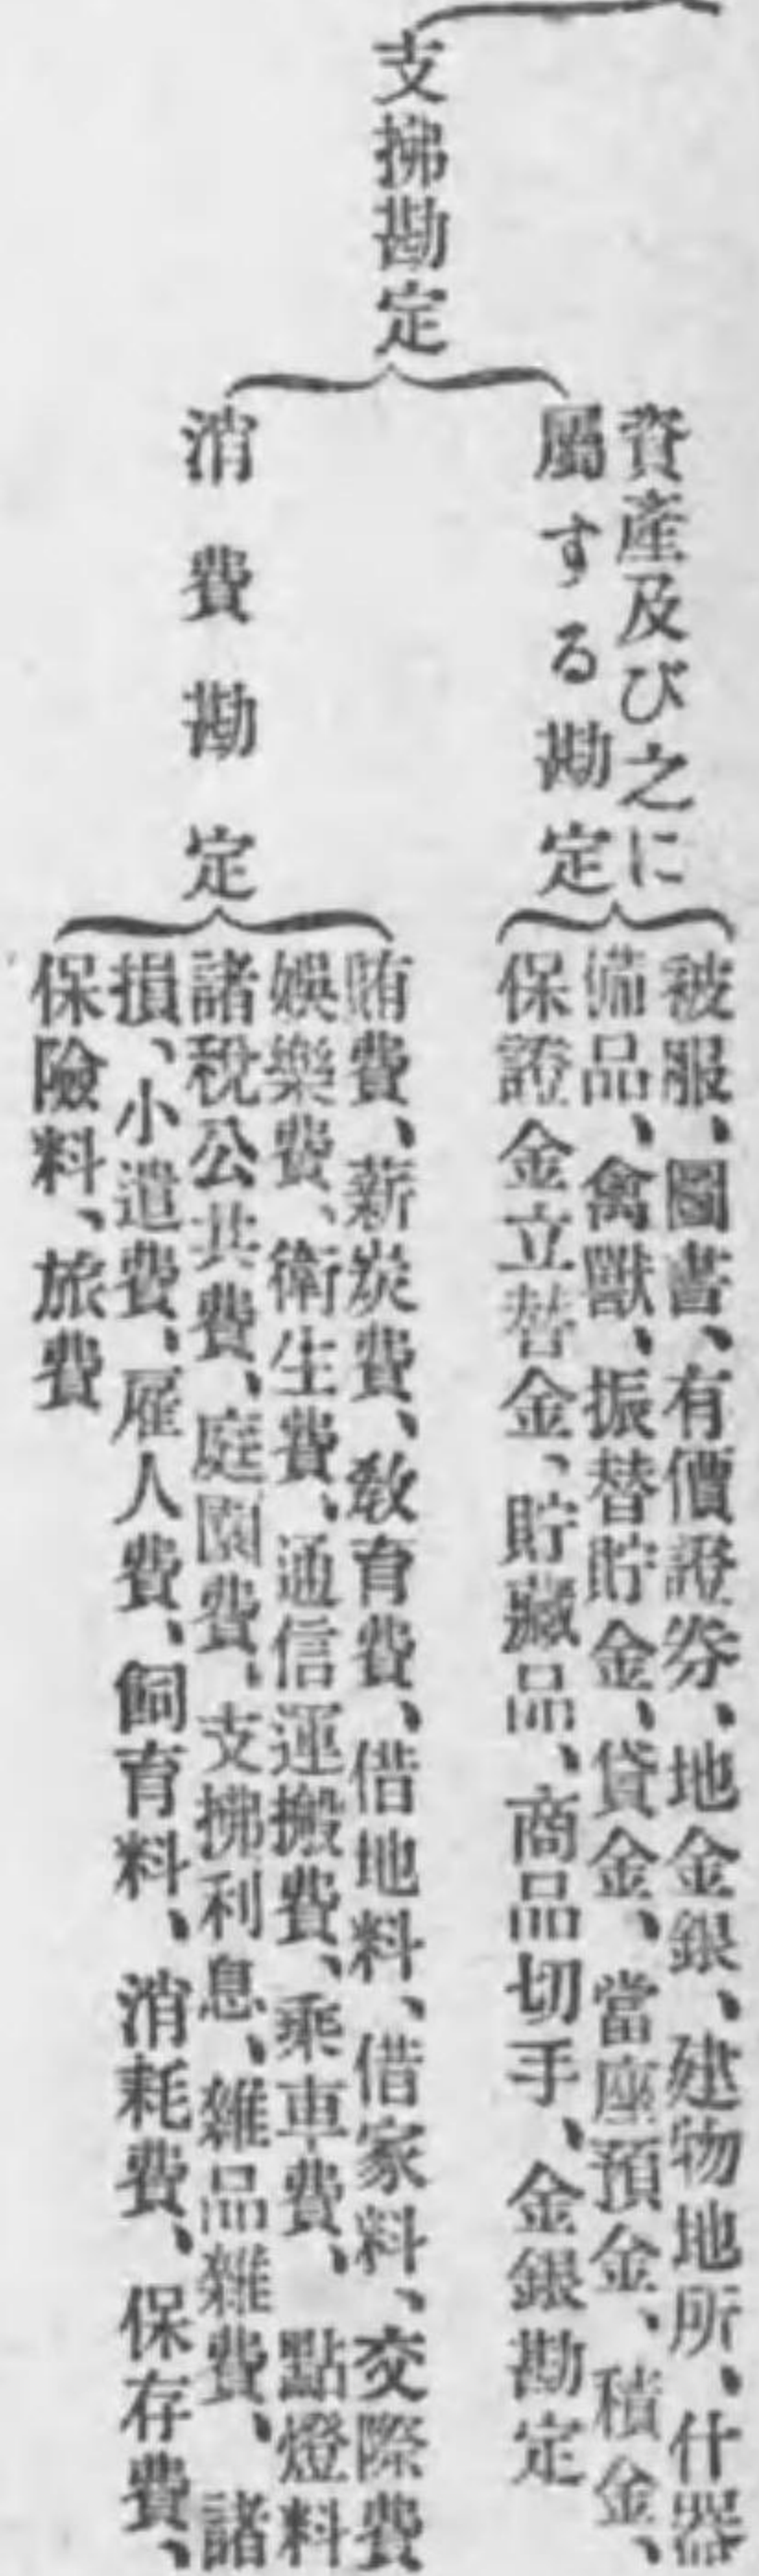 支拂勘定
資產及び之に
屬する勘定
被服、圖書、有價證券、地金銀、建物地所、什器
備品、禽獸、振替貯金、貸金、當座預金、積金、
保證金立替金、貯藏品、商品切手、金銀勘定
消費勘定
賄費、薪炭費、敎育費、借地料、借家料、交際費
娛樂費、衛生費、通信運搬費、乘車費、點燈料
諸稅公共費、庭園費、支拂利息、雜品雜費、諸
損、小遣費、雇人費、飼育料、消耗費、保存費、
保險料、旅費